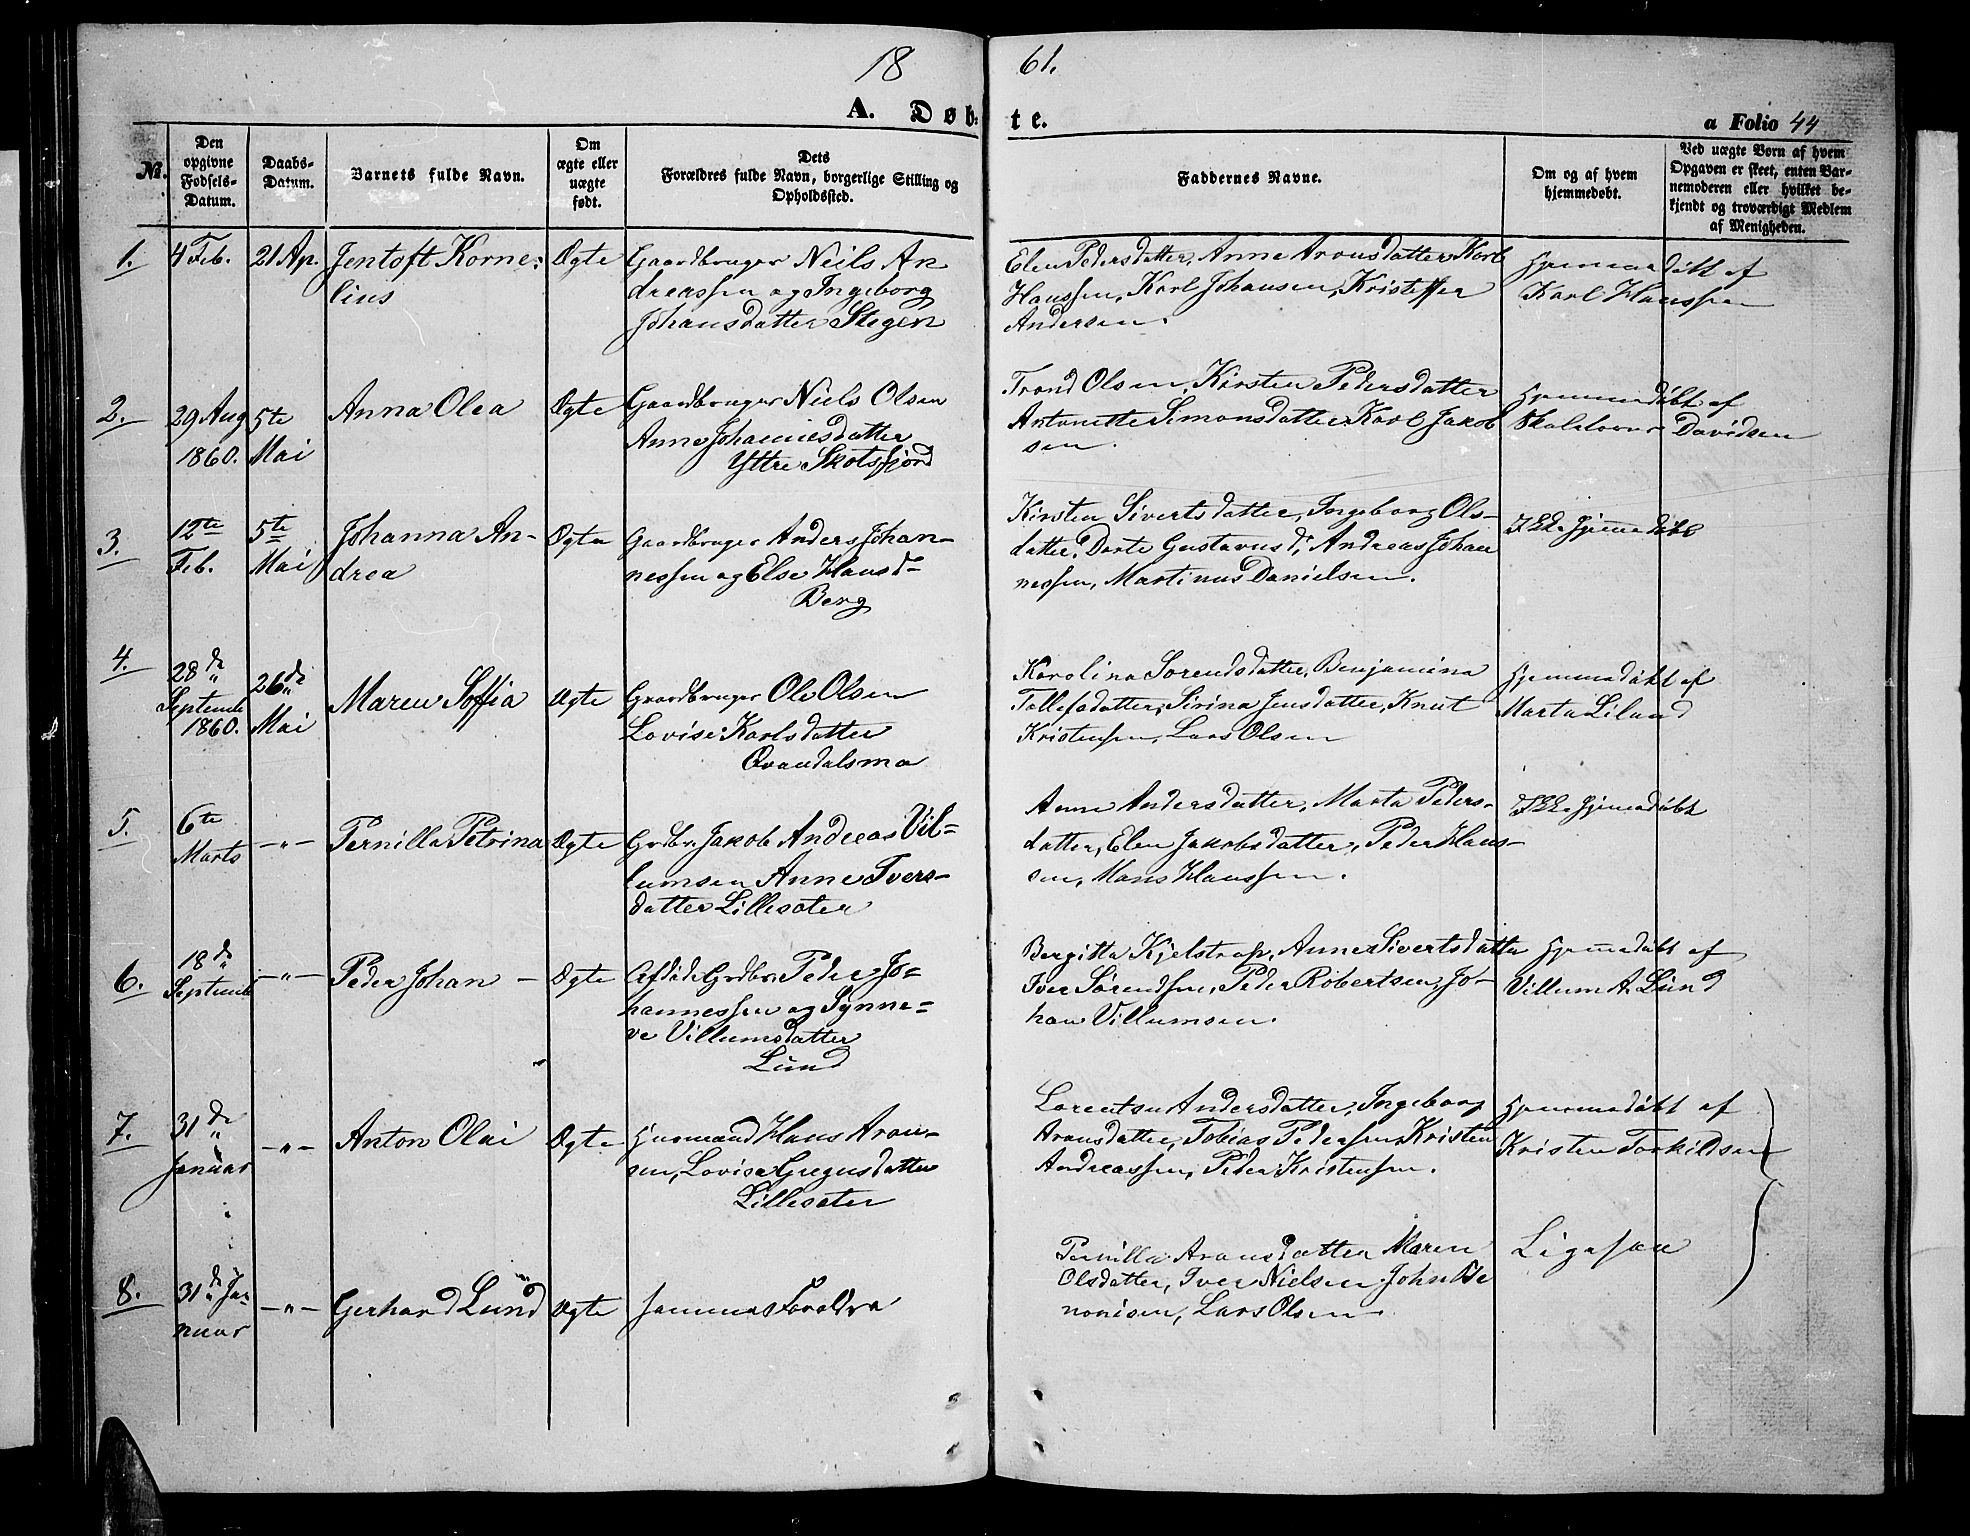 18 61.
A. Døb: te.
a Folio 44
No.
Den opgivne Fødsels-Datum.
Daabs-Datum.
Barnets fulde Navn.
Om ægte eller uægte født.
Dets Forældres fulde Navn, borgerlige Stilling og Opholdssted.
Faddernes Navne.
Om og af hvem hjemmedøbt.
Ved uægte Børn af hvem Opgaven er skeet, enten Barnemoderen eller hvilket bekjendt og troværdigt Medlem af Menigheden.
1. 4 Feb. 21 Ap. Jentoft Korne:
lius
Ægte
Gaardbruger Neils An
dreassen og Ingeborg
Johansdatter Stegen
Elen Pedersdatter, Anne Aronsdatter Karl
Hanssen, Karl Johansen, Kristoffer
Andersen.
Hjemmedøbt af
Karl Hanssen
2. 29 Aug
1860.
5te
Mai
Anna Olea
Ægte
Gaardbruger Niels Olsen
Anne Johannesdatter
Yttre Skotsfjord
Trond Olsen, Kirsten Pedersdatter
Antonette Simonsdatter Karl Jakob
sen.
Hjemmedøbt af
Skolelærer Davidsen
3. 12te
Feb.
5te
Mai
Johanna An-
drea
Ægte
Gaardbruger Anders Johan-
nessen og Else Hansd-
Berg
Kirsten Sivertsdatter, Ingeborg Ols-
datter, Dorte Gustavusd; Andreas Johan
nessen, Martinus Danielsen.
Ikke Hjemmedøbt
4. 28de
Septemb
1860.
26de
Mai
Maren Soffia
Ægte
Gaardbruger Ole Olsen
Lovise Karlsdatter
Qvandalsmo
Karolina Sorensdatter, Benjamina
Tollefsdatter, Sirina Jensdatter, Knut
Kristensen, Lars Olsen
Hjemmedøbt af
Marta Liland
5. 6te
Marts
-"-
Pernilla Petrina
Ægte
Grdbr. Jakob Andreas Vil=
lumsen Anne Ivers-
datter Lillesæter
Anne Andersdatter, Marta Peders-
datter, Elen Jakobsdatter, Peder Hans-
sen, Mons Hanssen.
Ikke Hjemmedøbt
6. 18de
Septemb
-"-
Peder Johan -
Ægte
Afdøde Grdbr. Peder Jo=
hannessen og Synne=
ve Villumsdatter
Lund
Bergitta Kjelstrup, Anne Sivertsdatter
Iver Sørendsen, Peder Robertsen, Jo-
han Villumsen.
Hjemmedøbt af
Villum A. Lund
7. 31de
Januar
-"-
Anton Olai
Ægte
Husmand Hans Aron-
sen, Lovisa Gregusdatter
Lillesæter
Lorentse Andersdatter, Ingeborg
Aronsdatter, Tobias Pedersen, Kristen
Andreassen, Peder Kristensen.
Hjemmedøbt af
Kristen Torkildsen
8. 31de Ja-
nuar
-"-
Gerhard Lund
Ægte
samme Foreldre
Pernilla Aronsdatter Maren
Olsdatter, Iver Nielsen John Be
nonisen, Lars Olsen
Ligesaa